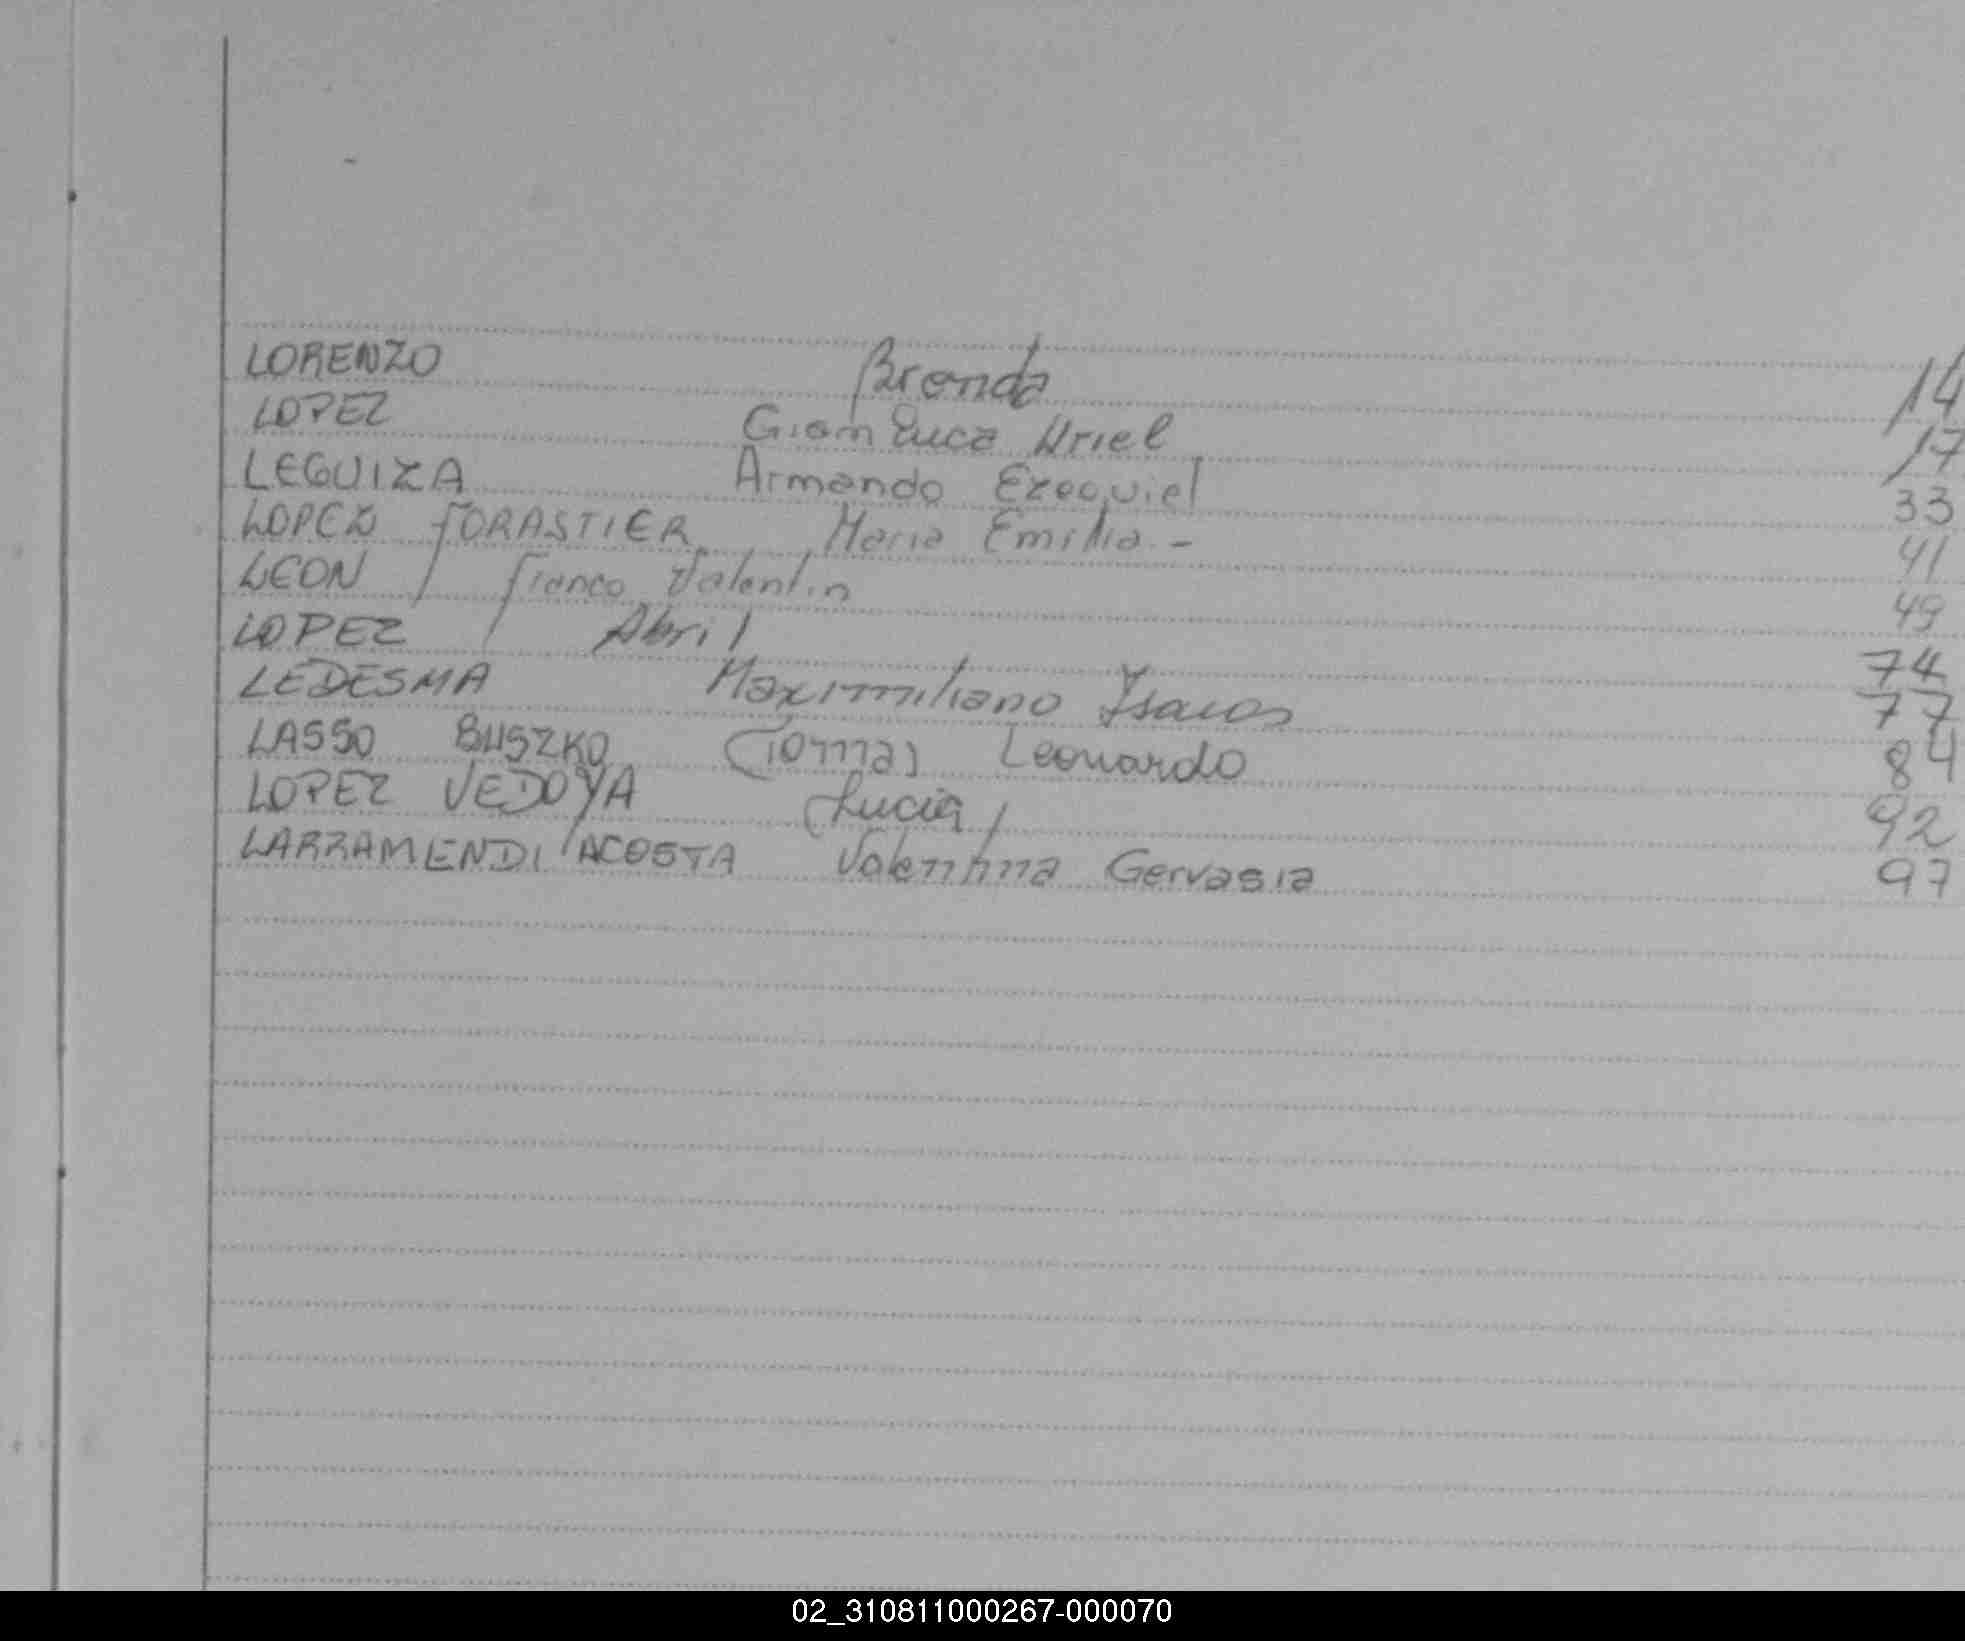 LORENZO Brenda 14
LOPEZ Gianluca Uriel 17
LEGUIZA Armando Ezequiel 33
LOPEZ FORASTIER Maria Emilia - 41
LEON Franco Valentin 49
LOPEZ Abril 74
LEDESMA Maximiliano 77
LASSO BUSZKO Tomas Leonardo 84
LOPEZ VEDOYA Lucia 92
LARRAMENDI ACOSTA Valentina Gervasia 97
02_310811000267-000070